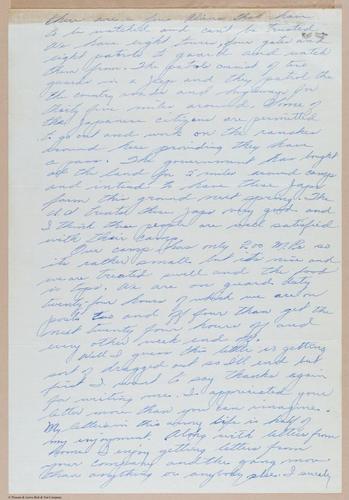 there are a few aliens that have
to be watched and can't be trusted.
We have eight towers, four gates and
eight patrols to guard and watch
them from. The patrols consist of two
guards in a Jeep and they patrol the
the country roads and highways for
thirty five miles around. Some of
the Japanese citizens are permitted
to go out and work on the ranches
around here providing they have
a pass. The government has bought
all the land for 5 miles around camps
and intend to have these Japs
farm this ground next spring. The
U.S. treats these Japs very good and
I think these people are well satisfied
with their camps.
Our camp has only 200 M.P.s so
its rather small but its nice and
we are treated swell and the food
is tops. We are on guard duty
twenty-four hours of which we are on
posts two and off four than get the
next twenty four hours off and
every other week end off.
Well I guess this letter is getting
sort of dragged out so I'll end but
first I want to say thanks again
for writing me. I appreciated your
letter more than you can imagine.
My letters in this army life is half of
my enjoyment. Along with letters from
home I enjoy getting letters from
your company and the gang more
than anything or anybody else. I surely
© Thomas & Lottie Bell & The Company